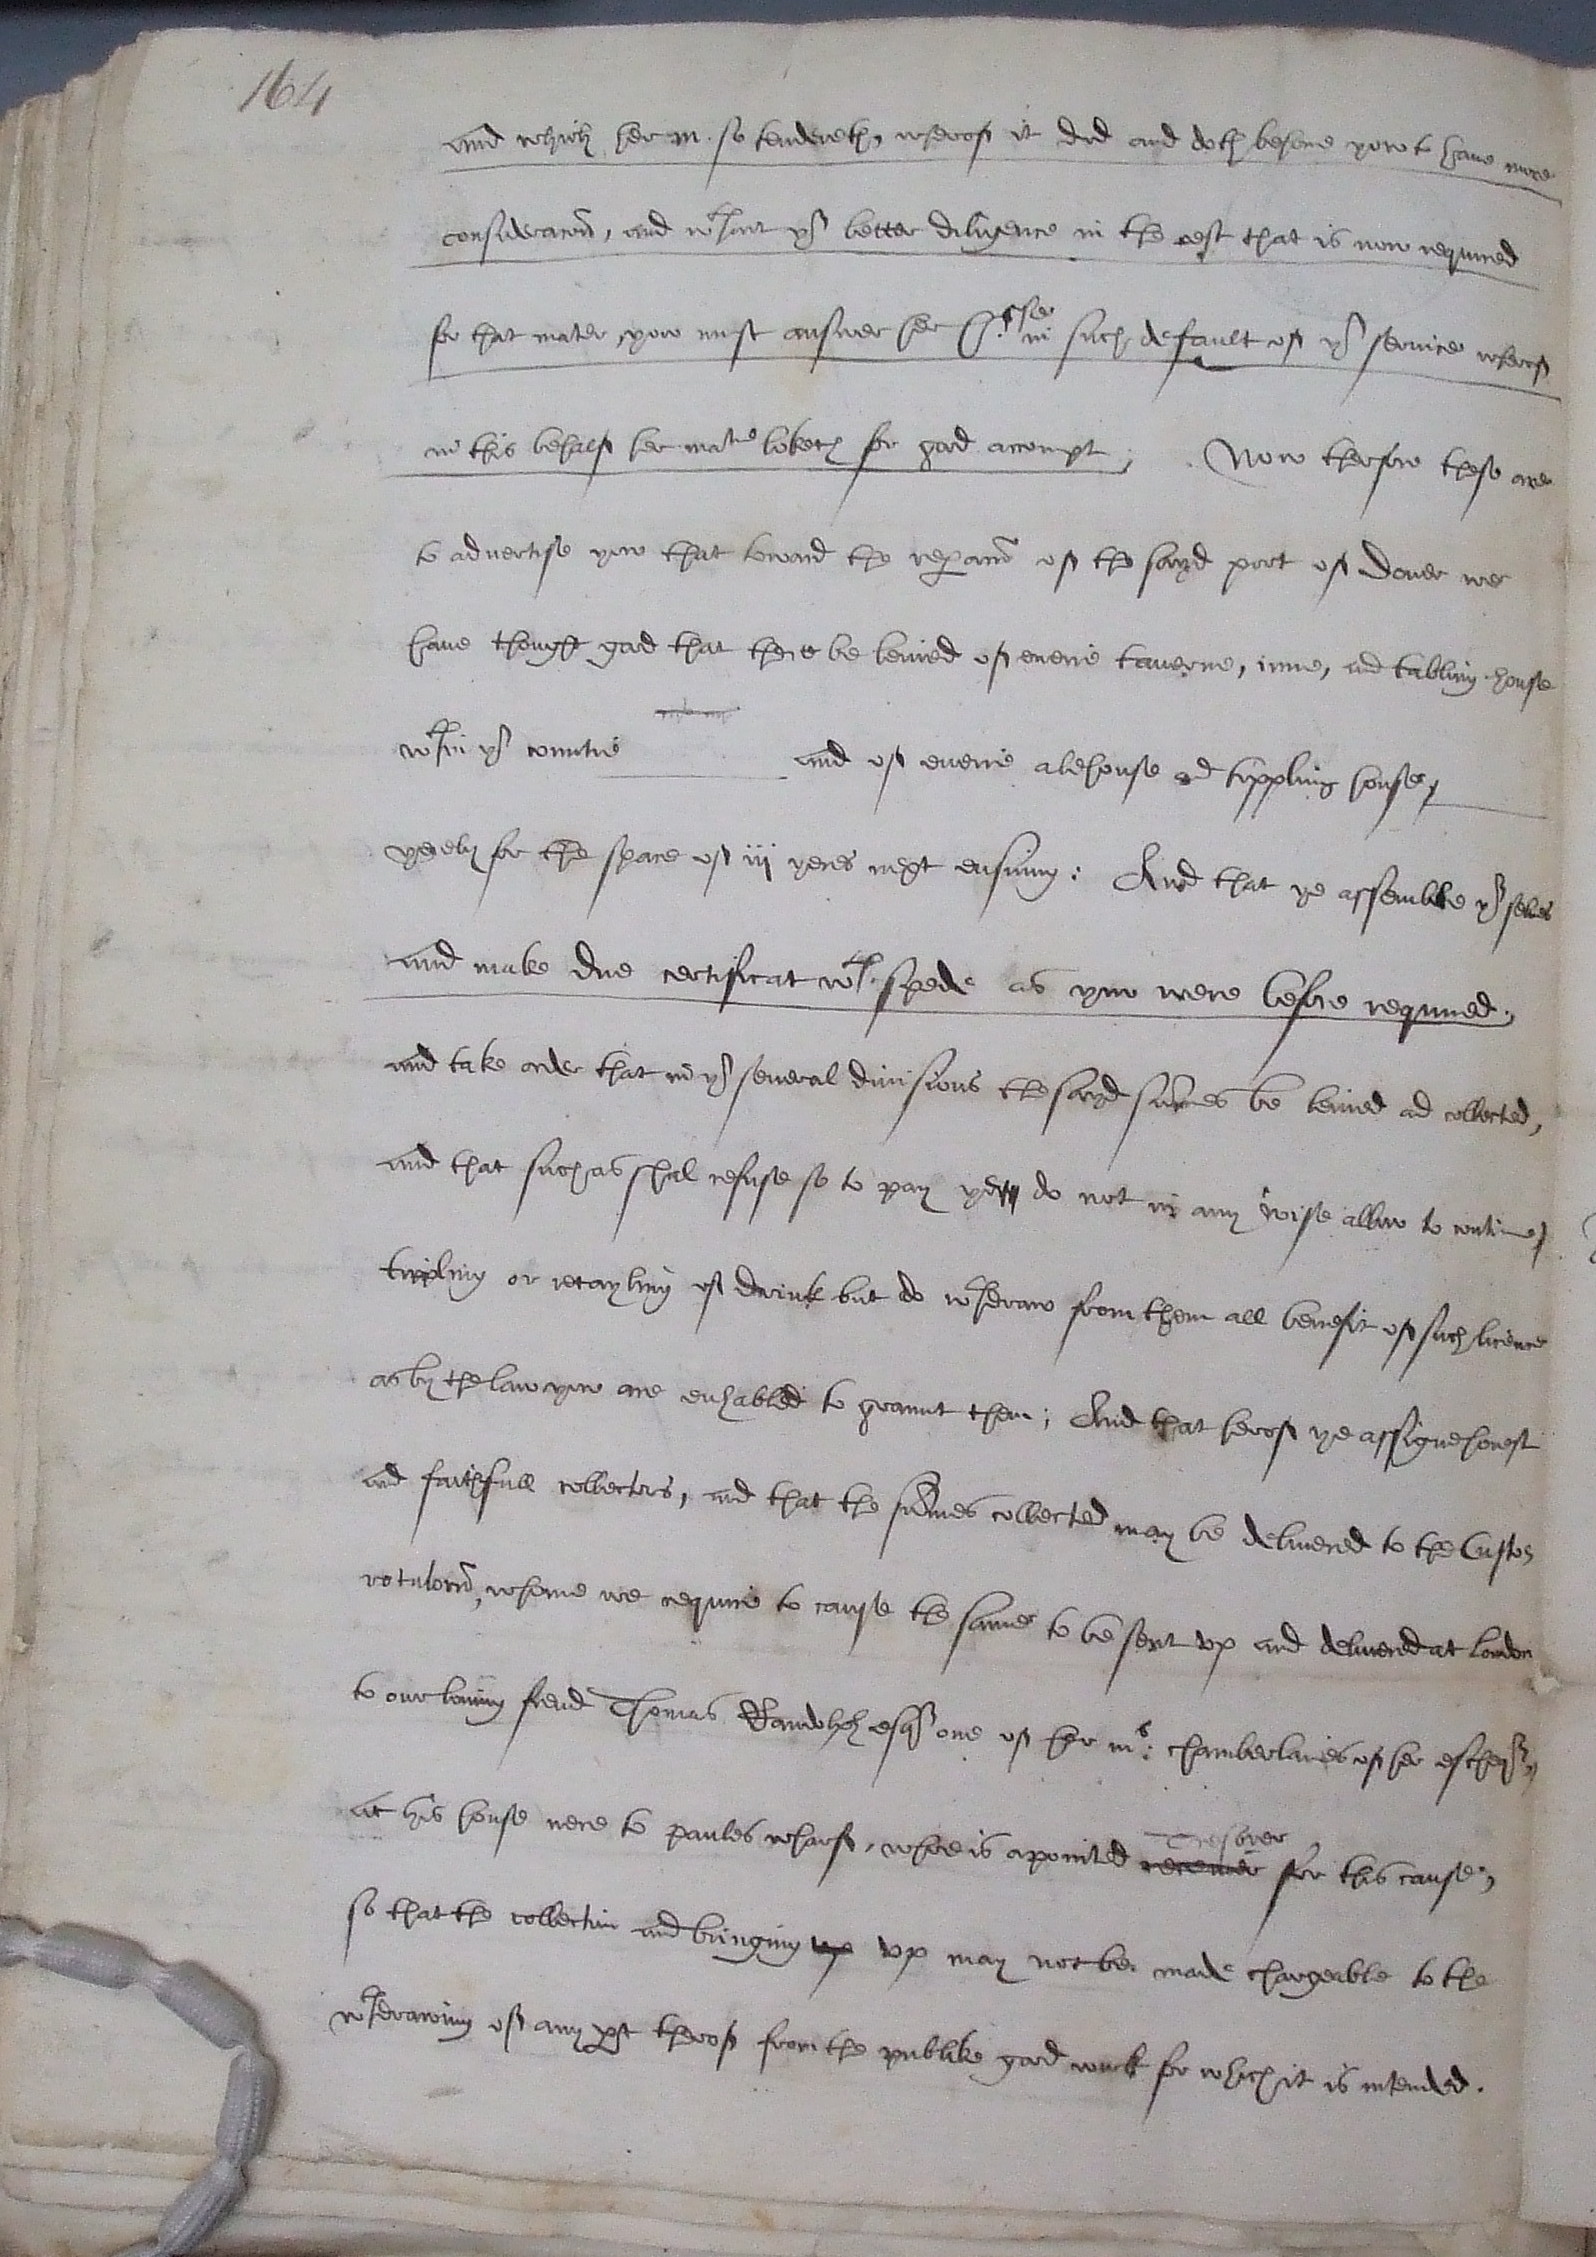 164
and which her m. so tendereth, wherof it did and doth behove yow to have more
consideracon, and wthout yr better diligence in the rest that is now required
for that mater, yow must answer her in such default of yr service wherof
in this behalf her matie loketh for good accompt, Now therfore these are
to advertise yow that toward the reparacon of the sayd port of Dover we
have thought good that there be levied of everie taverne, inne, and tabling house
wthin yr countie and of everie alehouse and tippling house,
yerely for the space of iij yeres next ensuing: And that ye assemble yr selves
and make due certificat wth spede as yow were before required,
and take order that in yr several divisions the sayd summes be levied and collected,
and that such as shal refuse so to pay ye do not in any wise allow to continue
tippling or retayling of drink but do wthdraw from them all benefit of such licence
as by the law yow are enhabled to graunt them; And that herof ye assigne honest
and faithfull collectors, and that the summes collected may be delivered to the Custos
rotulorum, whome we require to cause the same to be sent up and delivered at London
to our loving frend Thomas Randolph esqr one of her ms: chamberlaines of her escheqr,
at his house nere to paules wharf, who is apointed receiver Tresorer for this cause,
so that the collection and bringing up up may not be made chargeable to the
wthdrawing of any part therof from the publike good work for which it is intended.